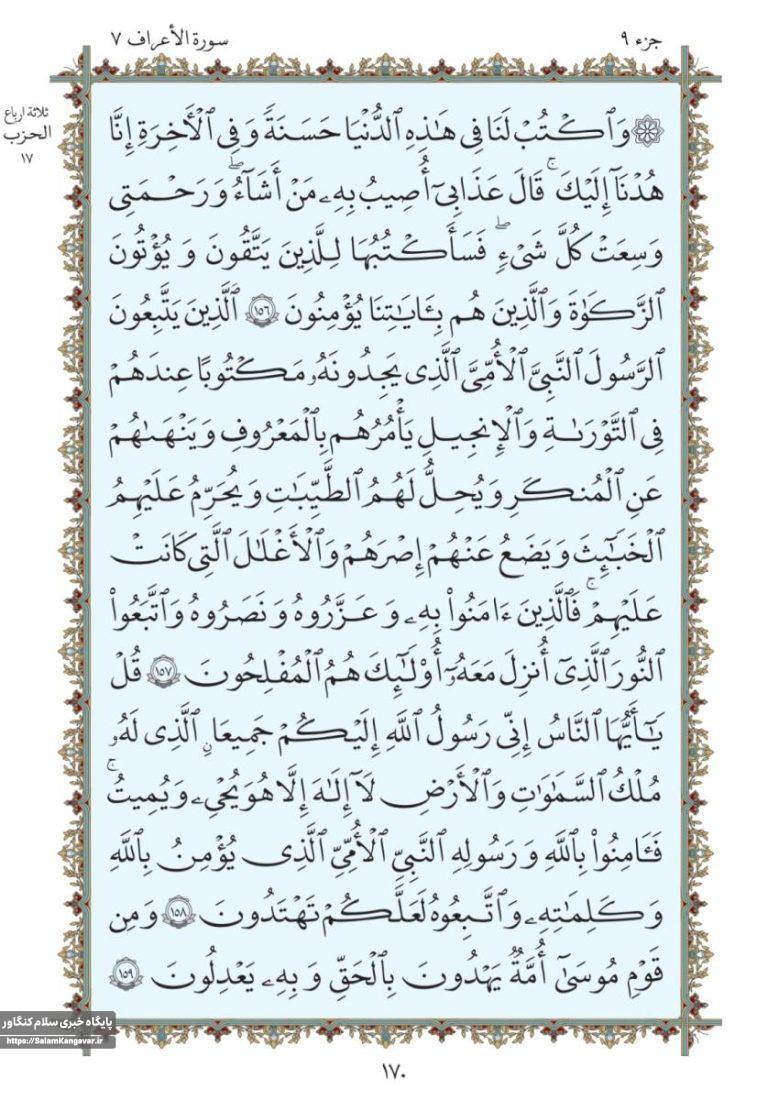 جزء ۹
سورة الأعراف ۷
ثلاثة ارباع
الحزب
۱۷
وَٱكۡتُبۡ لَنَا فِی هَـٰذِهِ ٱلدُّنۡیَا حَسَنَةࣰ وَفِی ٱلۡأَخِرَةِ إِنَّا
هُدۡنَآ إِلَیۡكَۚ قَالَ عَذَابِیٓ أُصِیبُ بِهِۦ مَنۡ أَشَآءُۖ وَرَحۡمَتِی
وَسِعَتۡ كُلَّ شَیۡءࣲۖ فَسَأَكۡتُبُهَا لِلَّذِینَ یَتَّقُونَ وَیُؤۡتُونَ
ٱلزَّكَوٰةَ وَٱلَّذِینَ هُم بِـَٔایَـٰتِنَا یُؤۡمِنُونَ ۱۵۶ ٱلَّذِینَ یَتَّبِعُونَ
ٱلرَّسُولَ ٱلنَّبِیَّ ٱلۡأُمِّیَّ ٱلَّذِی یَجِدُونَهُۥ مَكۡتُوبًا عِندَهُمۡ
فِی ٱلتَّوۡرَىٰةِ وَٱلۡإِنجِیلِ یَأۡمُرُهُم بِٱلۡمَعۡرُوفِ وَیَنۡهَىٰهُمۡ
عَنِ ٱلۡمُنكَرِ وَیُحِلُّ لَهُمُ ٱلطَّیِّبَـٰتِ وَیُحَرِّمُ عَلَیۡهِمُ
ٱلۡخَبَـٰٓئِثَ وَیَضَعُ عَنۡهُمۡ إِصۡرَهُمۡ وَٱلۡأَغۡلَـٰلَ ٱلَّتِی كَانَتۡ
عَلَیۡهِمۡۚ فَٱلَّذِینَ ءَامَنُوا۟ بِهِۦ وَعَزَّرُوهُ وَنَصَرُوهُ وَٱتَّبَعُوا۟
ٱلنُّورَ ٱلَّذِیٓ أُنزِلَ مَعَهُۥٓ أُو۟لَـٰٓئِكَ هُمُ ٱلۡمُفۡلِحُونَ ۱۵۷ قُلۡ
یَـٰٓأَیُّهَا ٱلنَّاسُ إِنِّی رَسُولُ ٱللَّهِ إِلَیۡكُمۡ جَمِیعًا ٱلَّذِی لَهُۥ
مُلۡكُ ٱلسَّمَـٰوَٰتِ وَٱلۡأَرۡضِ لَآ إِلَـٰهَ إِلَّا هُوَ یُحۡیِۦ وَیُمِیتُۚ
فَـَٔامِنُوا۟ بِٱللَّهِ وَرَسُولِهِ ٱلنَّبِیِّ ٱلۡأُمِّیِّ ٱلَّذِی یُؤۡمِنُ بِٱللَّهِ
وَكَلِمَـٰتِهِۦ وَٱتَّبِعُوهُ لَعَلَّكُمۡ تَهۡتَدُونَ ۱۵۸ وَمِن
قَوۡمِ مُوسَىٰٓ أُمَّةࣱ یَهۡدُونَ بِٱلۡحَقِّ وَبِهِۦ یَعۡدِلُونَ ۱۵۹
پایگاه خبری سلام کنگاور
https://SalamKangavar.ir
۱۷۰